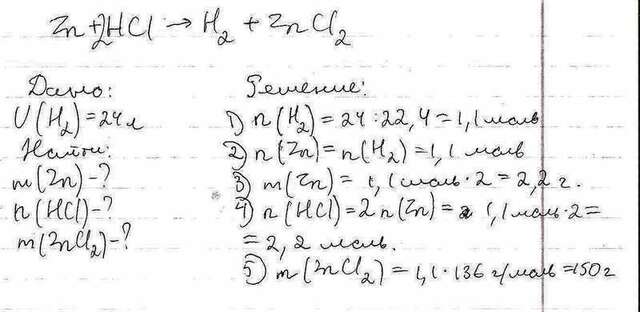 Zn + 2HCl → H₂ + ZnCl₂
Дано:
V(H₂) = 24 л
Найти:
m(Zn) - ?
n(HCl) - ?
m(ZnCl₂) - ?
Решение:
1) n(H₂) = 24 : 22,4 = 1,1 моль
2) n(Zn) = n(H₂) = 1,1 моль
3) m(Zn) = 1,1 моль · 2 = 2,2 г.
4) n(HCl) = 2 n(Zn) = 1,1 моль · 2 =
= 2,2 моль.
5) m(ZnCl₂) = 1,1 · 136 г/моль = 150 г